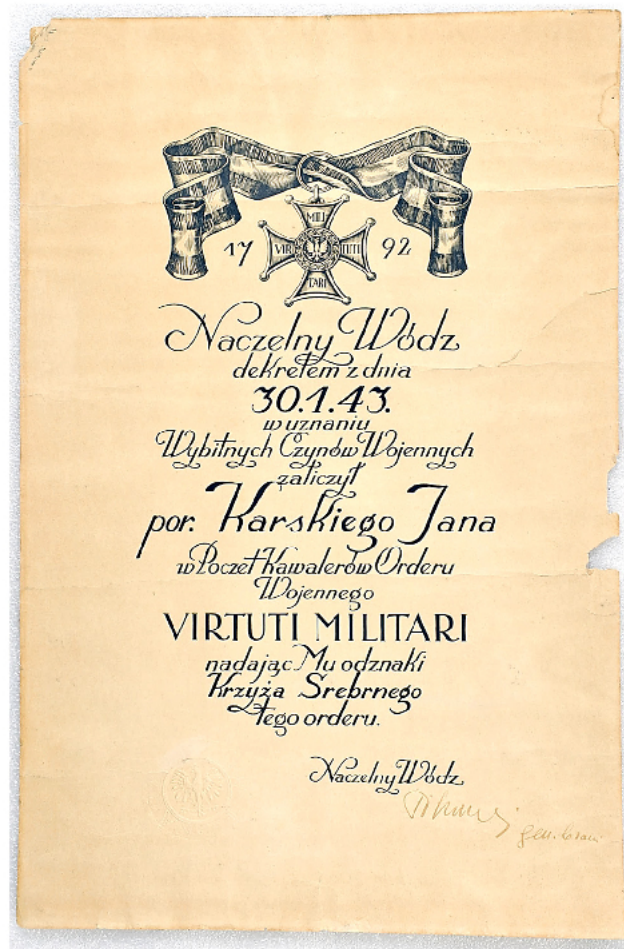 17 92
MILI
VIR TUTI
TARI
Naczelny Wódz
dekretem z dnia
30.1.43.
w uznaniu
Wybitnych Czynów Wojennych
zaliczył
por. Karskiego Jana
w Poczet Kawalerów Orderu
Wojennego
VIRTUTI MILITARI
nadając Mu odznaki
Krzyża Srebrnego
tego orderu.
Naczelny Wódz
gen.